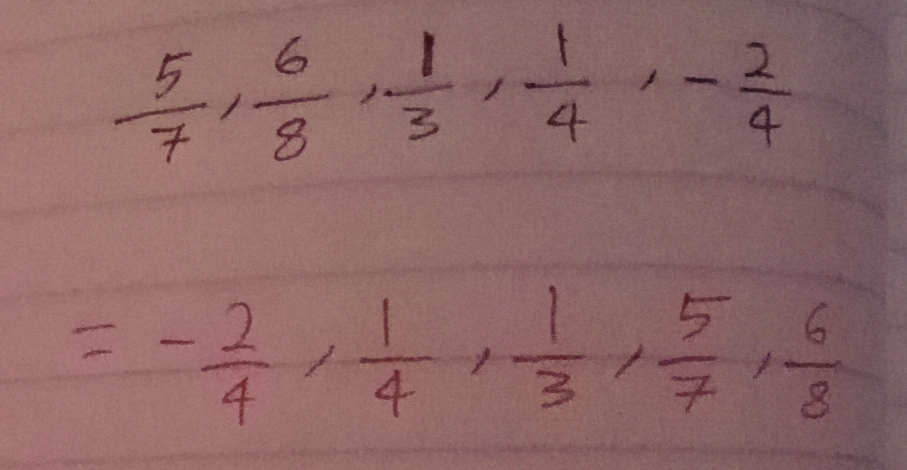 5/7, 6/8, 1/3, 1/4, -2/4
= -2/4, 1/4, 1/3, 5/7, 6/8